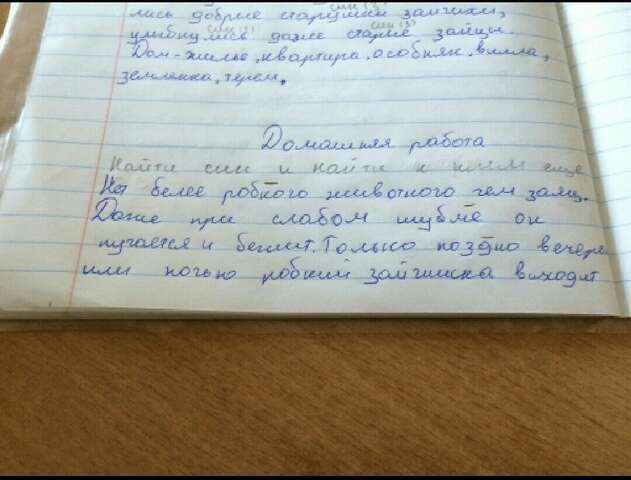 лись добрые старушки зайчихи,
син (3)
улыбнулись даже старые зайцы.
син (1) син (3)
Дом-жильё, квартира, особняк, вилла,
землянка, терем.
Домашняя работа
Найти син и найти к ним еще
Нет более робкого животного чем заяц.
Даже при слабом шубме он
пугается и бежит. Только поздно вечере
или ночью робкий зайчишка виходят